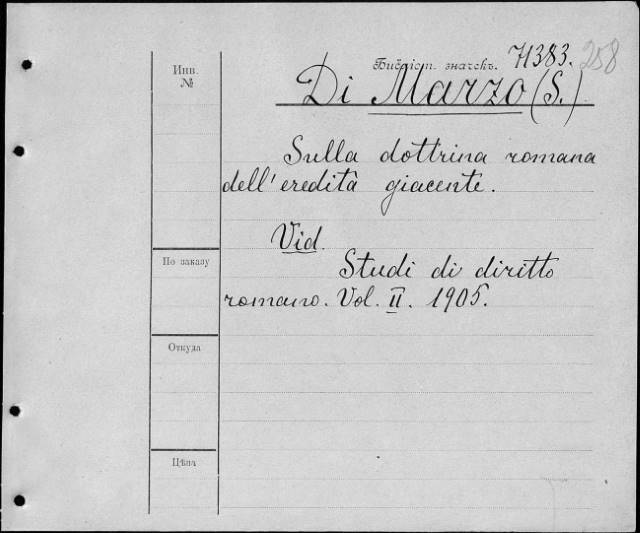 Инв. №
Библіот. значекъ. 71383. 258
Di Marzo (S.)
Sulla dottrina romana
dell'eredità giacente.
Vid.
Studi di diritto
romano. Vol. II. 1905.
По заказу
Откуда
Цѣна